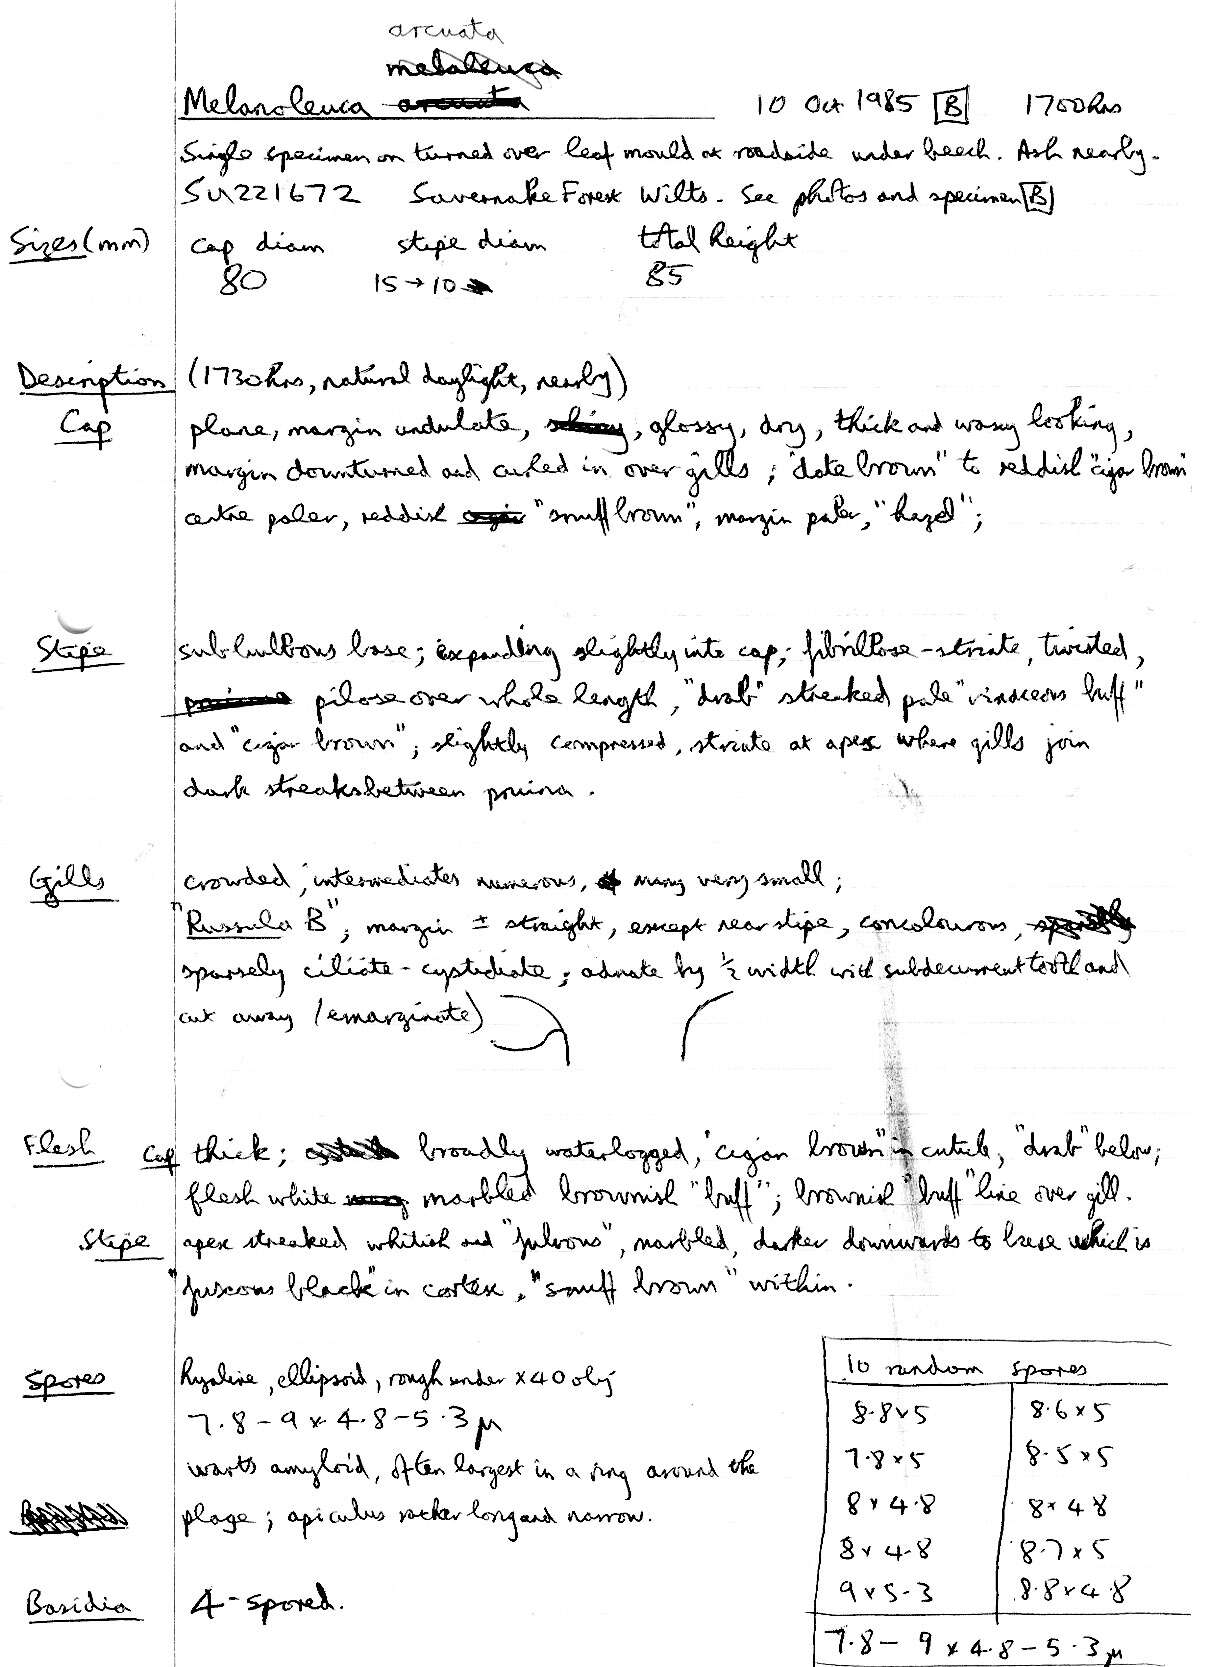 arcuata
melaleuca
Melanoleuca arcuata 10 Oct 1985 B 1700hrs
Single specimen on turned over leaf mould at roadside under beech. Ash nearby.
SU221672 Savernake Forest Wilts. See photos and specimen B
Sizes (mm) cap diam stipe diam total height
80 15→10 85
Description (1730hrs, natural daylight, nearby)
Cap plane, margin undulate, shiny, glossy, dry, thick and waxy looking,
margin downturned and curled in over gills; "date brown" to reddish "cigar brown"
centre paler, reddish cigar "snuff brown", margin paler, "hazel";
Stipe subbulbous base; expanding slightly into cap; fibrillose-striate, twisted,
pilose over whole length, "drab" streaked pale "vinaceous buff"
and "cigar brown"; slightly compressed, striate at apex where gills join
dark streaks between pruina.
Gills crowded, intermediates numerous, many very small;
"Russula B"; margin ± straight, except near stipe, concolourous,
sparsely ciliate-cystidiate; adnate by ½ width with subdecurrent tooth and
cut away (emarginate)
Flesh Cap thick; broadly waterlogged, "cigar brown" in cuticle, "drab" below;
flesh white marbled brownish "buff"; brownish "buff" line over gill.
Stipe apex streaked whitish and "fulvous", marbled, darker downwards to base which is
"fuscous black" in cortex, "snuff brown" within.
Spores hyaline, ellipsoid, rough under ×40 obj
7.8-9 × 4.8-5.3 µ
warts amyloid, often largest in a ring around the
plage; apiculus rather long and narrow.
Basidia 4-spored.
10 random spores
8.8×5 8.6×5
7.8×5 8.5×5
8×4.8 8×4.8
8×4.8 8.7×5
9×5.3 8.8×4.8
7.8-9×4.8-5.3µ